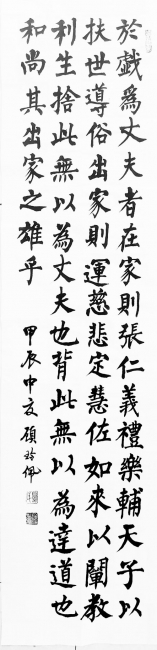 於戲為丈夫者在家則張仁義禮樂輔天子以
扶世導俗出家則運慈悲定慧佐如來以闡教
利生捨此無以為丈夫也背此無以為達道也
和尚其出家之雄乎
甲辰中夏顧佩